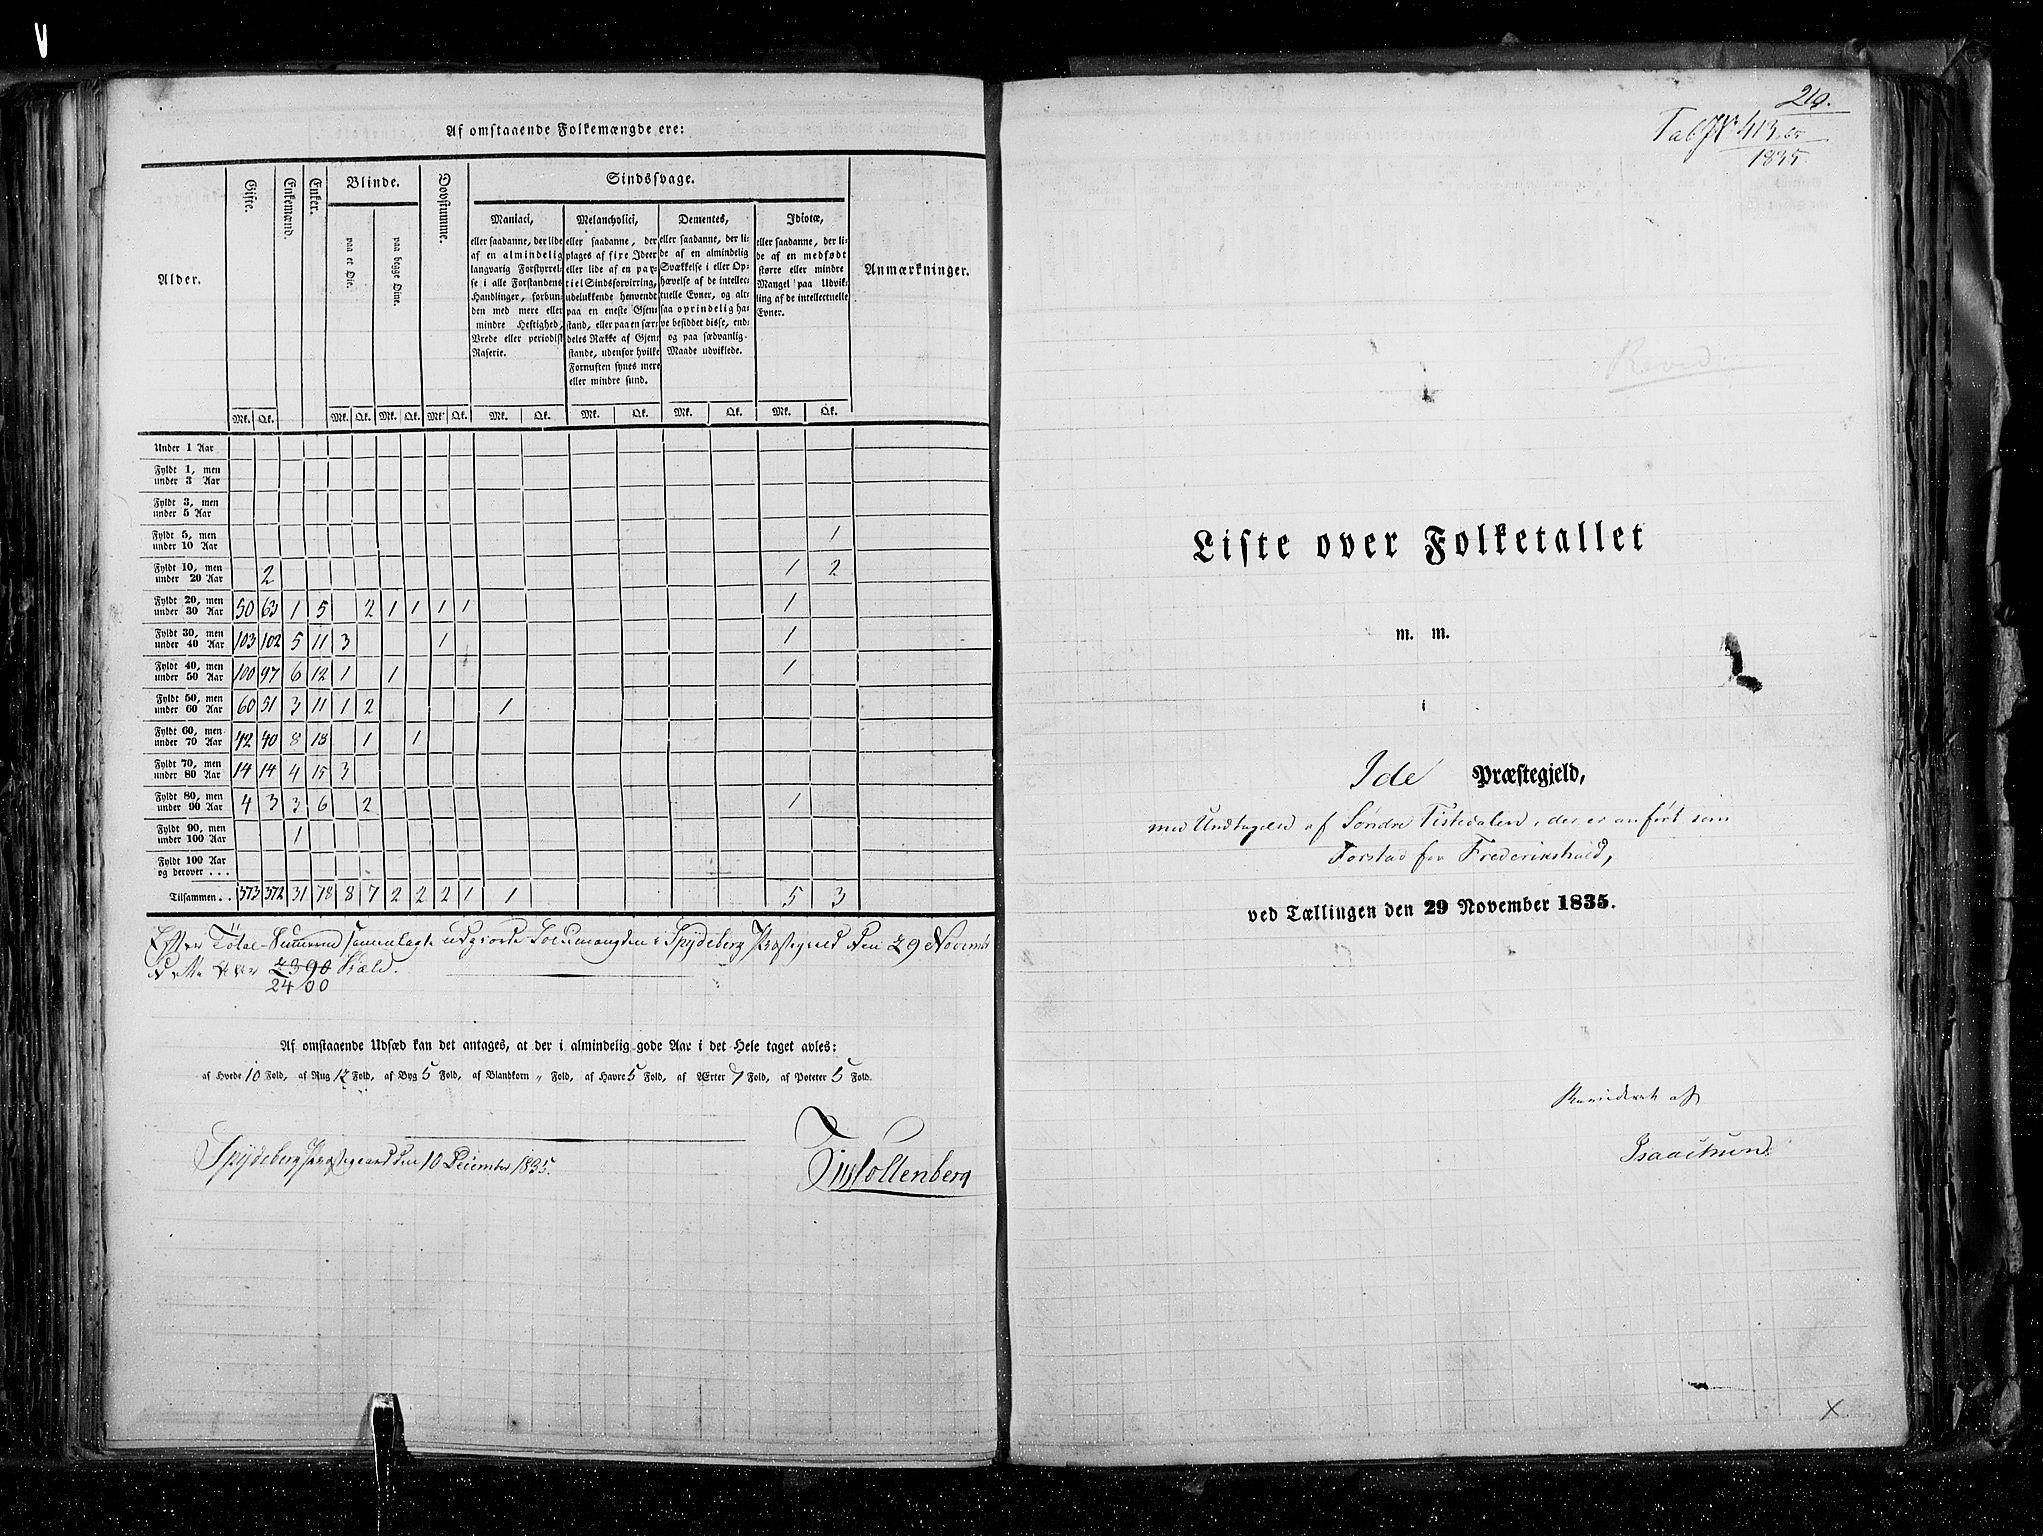 V
Af omstaaende Folkemængde ere:
Alder.
Gifte.
Enkemænd.
Enker.
Blinde.
paa et Øie.
paa begge Øine.
Døvstumme.
Sindssvage.
Maniaci,
eller saadanne, der lide
af en almindelig
langvarig Forstyrrel-
se i alle Forstandens
Handlinger, forbun-
den med mere eller
mindre Heftighed,
Vrede eller periodisk
Raserie.
Melancholici,
eller saadanne, der
plages af fixe Ideer
eller lide af en par-
tiel Sindsforvirring,
udelukkende henvendt
paa en eneste Gjen-
stand, eller paa en sær-
deles Række af Gjen-
stande, udenfor hvilke
Fornuften synes mere
eller mindre sund.
Dementes,
eller saadanne, der li-
de af en almindelig
Svækkelse i eller Op-
hævelse af de intellec-
tuelle Evner, og alt-
saa oprindelig ha-
ve besiddet disse, end-
og paa sædvanlig
Maade udviklede.
Idiotæ,
eller saadanne, der li-
de af en medfødt
større eller mindre
Mangel paa Udvik-
ling af de intellectuelle
Evner.
Anmærkninger.
Mk. Qk. Mk. Qk. Mk. Qk. Mk. Qk. Mk. Qk. Mk. Qk. Mk. Qk. Mk. Qk.
Under 1 Aar
Fyldt 1, men
under 3 Aar
Fyldt 3, men
under 5 Aar
Fyldt 5, men
under 10 Aar 1
Fyldt 10, men
under 20 Aar 2 1 2
Fyldt 20, men
under 30 Aar 50 63 1 5 2 1 1 1 1 1
Fyldt 30, men
under 40 Aar 103 102 5 11 3 1 1
Fyldt 40, men
under 50 Aar 100 97 6 12 1 1 1
Fyldt 50, men
under 60 Aar 60 51 3 11 1 2 1
Fyldt 60, men
under 70 Aar 42 40 8 18 1 1
Fyldt 70, men
under 80 Aar 14 14 4 15 3
Fyldt 80, men
under 90 Aar 4 3 3 6 2 1
Fyldt 90, men
under 100 Aar 1
Fyldt 100 Aar
og derover . . .
Tilsammen . . 373 372 31 78 8 7 2 2 2 1 1 5 3
Total-Summerne sammenlagte udgjorde Folkemængden i Spydeberg Præstegjeld den 29 Novembr
dette Aar 2390 Siæle.
2400
Af omstaaende Udsæd kan det antages, at der i almindelig gode Aar i det Hele taget avles:
af Hvede 10 Fold, af Rug 12 Fold, af Byg 5 Fold, af Blandkorn " Fold, af Havre 5 Fold, af Ærter 7 Fold, af Poteter 5 Fold.
Spydeberg Præstegaard den 10 December 1835.
210.
Tab. N 413
1835
Revid.
Liste over Folketallet
m. m.
i
Ide Præstegjeld,
med Undtagelse af Søndre Tistedalen, der er anført som
Forstad for Frederikshald,
ved Tællingen den 29 November 1835.
Revideret af
Isaachsen
X